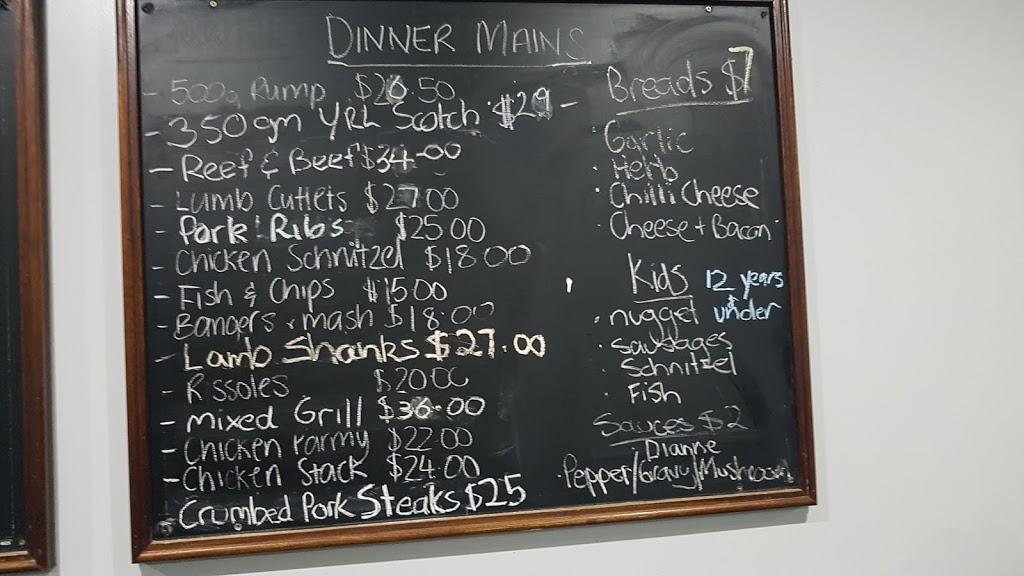 DINNER MAINS
- 500g Rump $26.50
- 350gm YRL Scotch $29 -
- Reef & Beef $34.00
- Lamb Cutlets $27.00
- Pork Ribs $25.00
- Chicken Schnitzel $18.00
- Fish & Chips $15.00
- Bangers & mash $18.00
- Lamb Shanks $27.00
- Rissoles $20.00
- Mixed Grill $36.00
- Chicken Parmy $22.00
- Chicken Stack $24.00
- Crumbed Pork Steaks $25
Breads $7
· Garlic
· Herb
· Chilli Cheese
· Cheese + Bacon
Kids 12 years
& under
· nugget
· Sausages
· Schnitzel
· Fish
Sauces $2
Dianne
· Pepper/Gravy/Mushroom